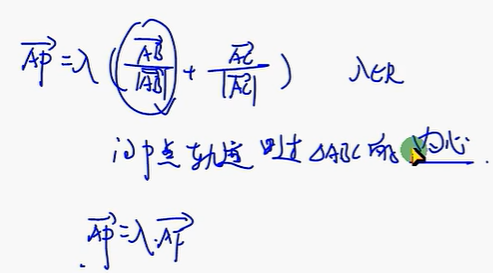 $\overrightarrow{AP}=\lambda\left(\frac{\overrightarrow{AB}}{|\overrightarrow{AB}|}+\frac{\overrightarrow{AC}}{|\overrightarrow{AC}|}\right)$ $\lambda\in R$
问P点轨迹过△ABC的内心.
$\overrightarrow{AP}=\lambda\cdot\overrightarrow{AF}$